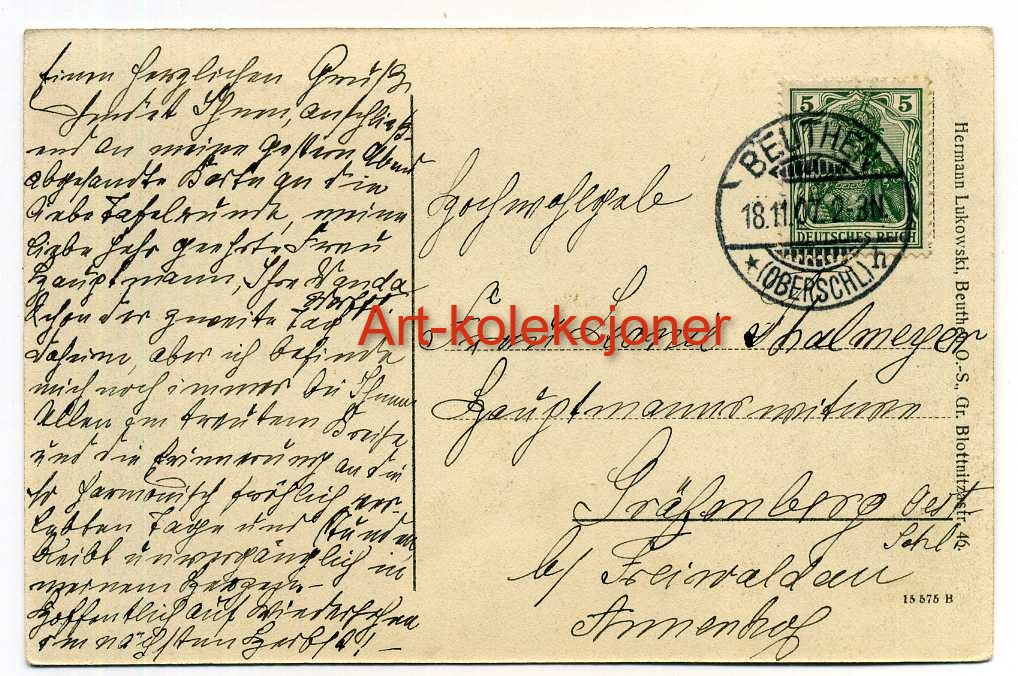 Einen herzlichen Gruß
sendet Ihnen, anschließ-
end an meine gestern Abend
abgesandte Karte an die
liebe Tafelrunde, meine
liebe sehr geehrte Frau
Hauptmann, Ihre Wanda
Schon der zweite Tag
daheim, aber ich befinde
mich noch immer bei Ihnen
Allen im trauten Kreise
und die Erinnerung an die
so harmonisch fröhlich ver-
lebten Tage und Stunden
bleibt unvergänglich in
meinem Herzen -
Hoffentlich auf Wiedersehen
im nächsten Herbst! -
Hochwohlgeb
Frau Lena Thalmeyer
Hauptmannswitwe
Gräfenberg Oest
Schl
b/ Freiwaldau
Annenhof
5 5
DEUTSCHES REICH
BEUTHEN
18.11.07 2-3N
* (OBERSCHL.) h
Hermann Lukowski, Beuthen O.-S., Gr. Blottnitzastr. 46.
15 575 B
Art-kolekcjoner